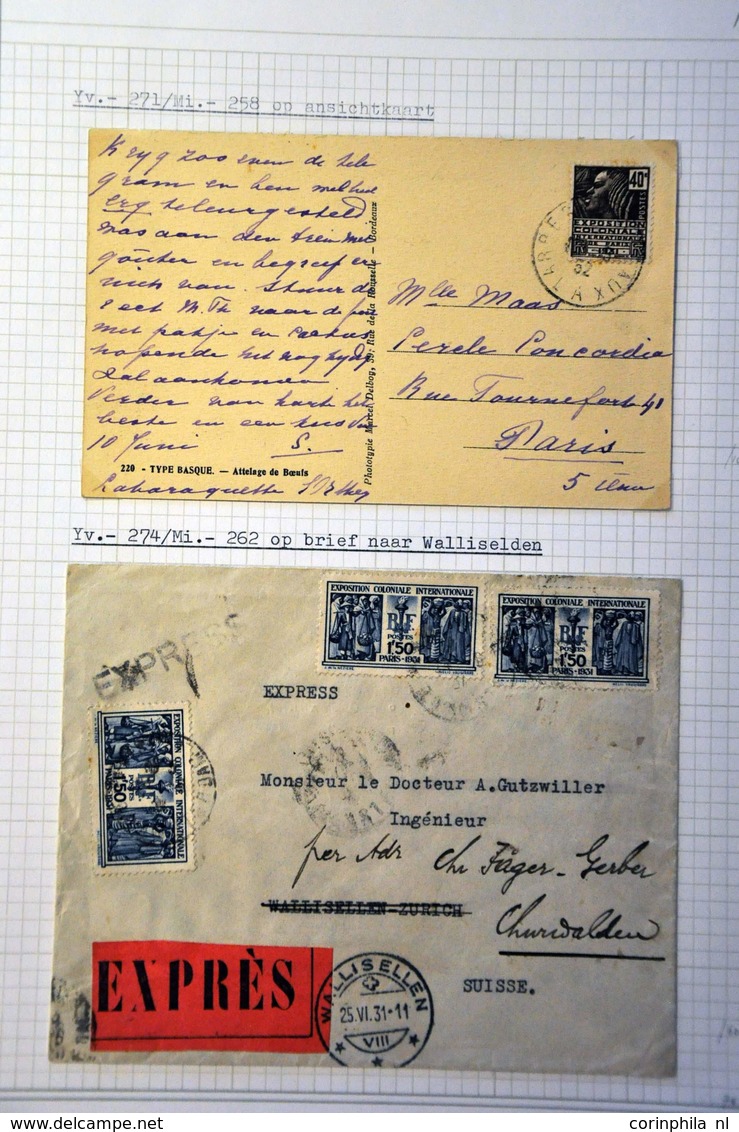 Yv.- 271/Mi.- 258 op ansichtkaart
Kryg zoo even de tele
gram en ben
erg teleurgesteld
was aan den trein met
en begreef er
van. Stuur
M. Th naar de
met pakje en
hopende het nog tydig
zal aankomen
Verder van harte het
beste en een kus
10 Juni S.
220 - TYPE BASQUE. — Attelage de Bœufs
Phototypie Marcel Delboy, Rue de la Rousselle - Bordeaux
40c
POSTES
EXPOSITION
COLONIALE
INTERNATIONALE
PARIS
1931
32
Mlle Maas
Cercle Concordia
Rue Tournefort 41
Paris
5 ième
Yv.- 274/Mi.- 262 op brief naar Walliselden
EXPRESS
EXPOSITION COLONIALE INTERNATIONALE
RF
POSTES
1F50
PARIS-1931
EXPOSITION COLONIALE INTERNATIONALE
RF
POSTES
1F50
PARIS-1931
EXPOSITION COLONIALE INTERNATIONALE
RF
1F50
PARIS-1931
EXPRESS
Monsieur le Docteur A.Gutzwiller
Ingénieur
per Adr Chr Jäger-Gerber
WALLISELLEN-ZURICH
Churwalden
SUISSE.
EXPRÈS
WALLISELLEN
25.VI.31-11
VIII
corinphila nl